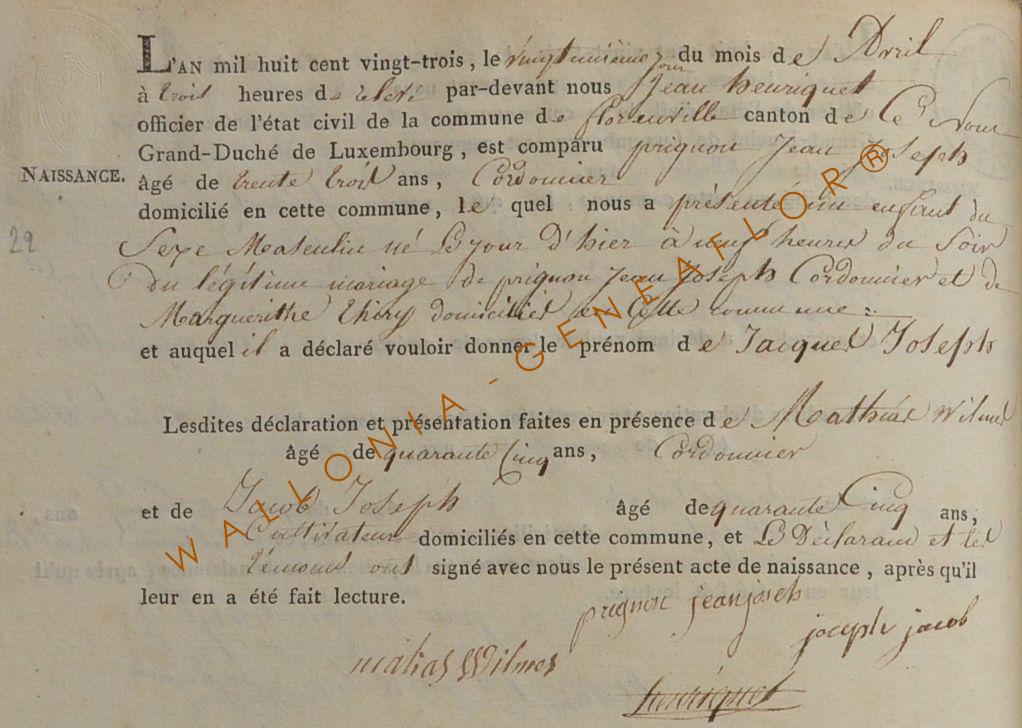 L'AN mil huit cent vingt-trois, le vingtunième jour du mois de Avril
à trois heures de relevé par-devant nous Jean henriquet
officier de l'état civil de la commune de florenville canton de Ce Nom
Grand-Duché de Luxembourg, est comparu prignon Jean Joseph
NAISSANCE.
âgé de trente trois ans, Cordonnier
domicilié en cette commune, le quel nous a présenté un enfant du
29
Sexe Masculin né Le jour D'hier à neuf heures du Soir
Du légitime mariage de prignon Jean Joseph Cordonnier et de
Marguerithe thiry domiciliés en Cette commune
et auquel il a déclaré vouloir donner le prénom de Jacques Joseph
Lesdites déclaration et présentation faites en présence de Mathias Wilmes
âgé de quarante Cinq ans, Cordonnier
et de Jacob Joseph âgé de quarante Cinq ans,
Cultivateur domiciliés en cette commune, et Le Déclarand et les
témoins ont signé avec nous le présent acte de naissance, après qu'il
leur en a été fait lecture.
prignon jean joseh
joseph jacob
matias Wilmes
henriquet
WALLONIA - GENEAFLOR ®